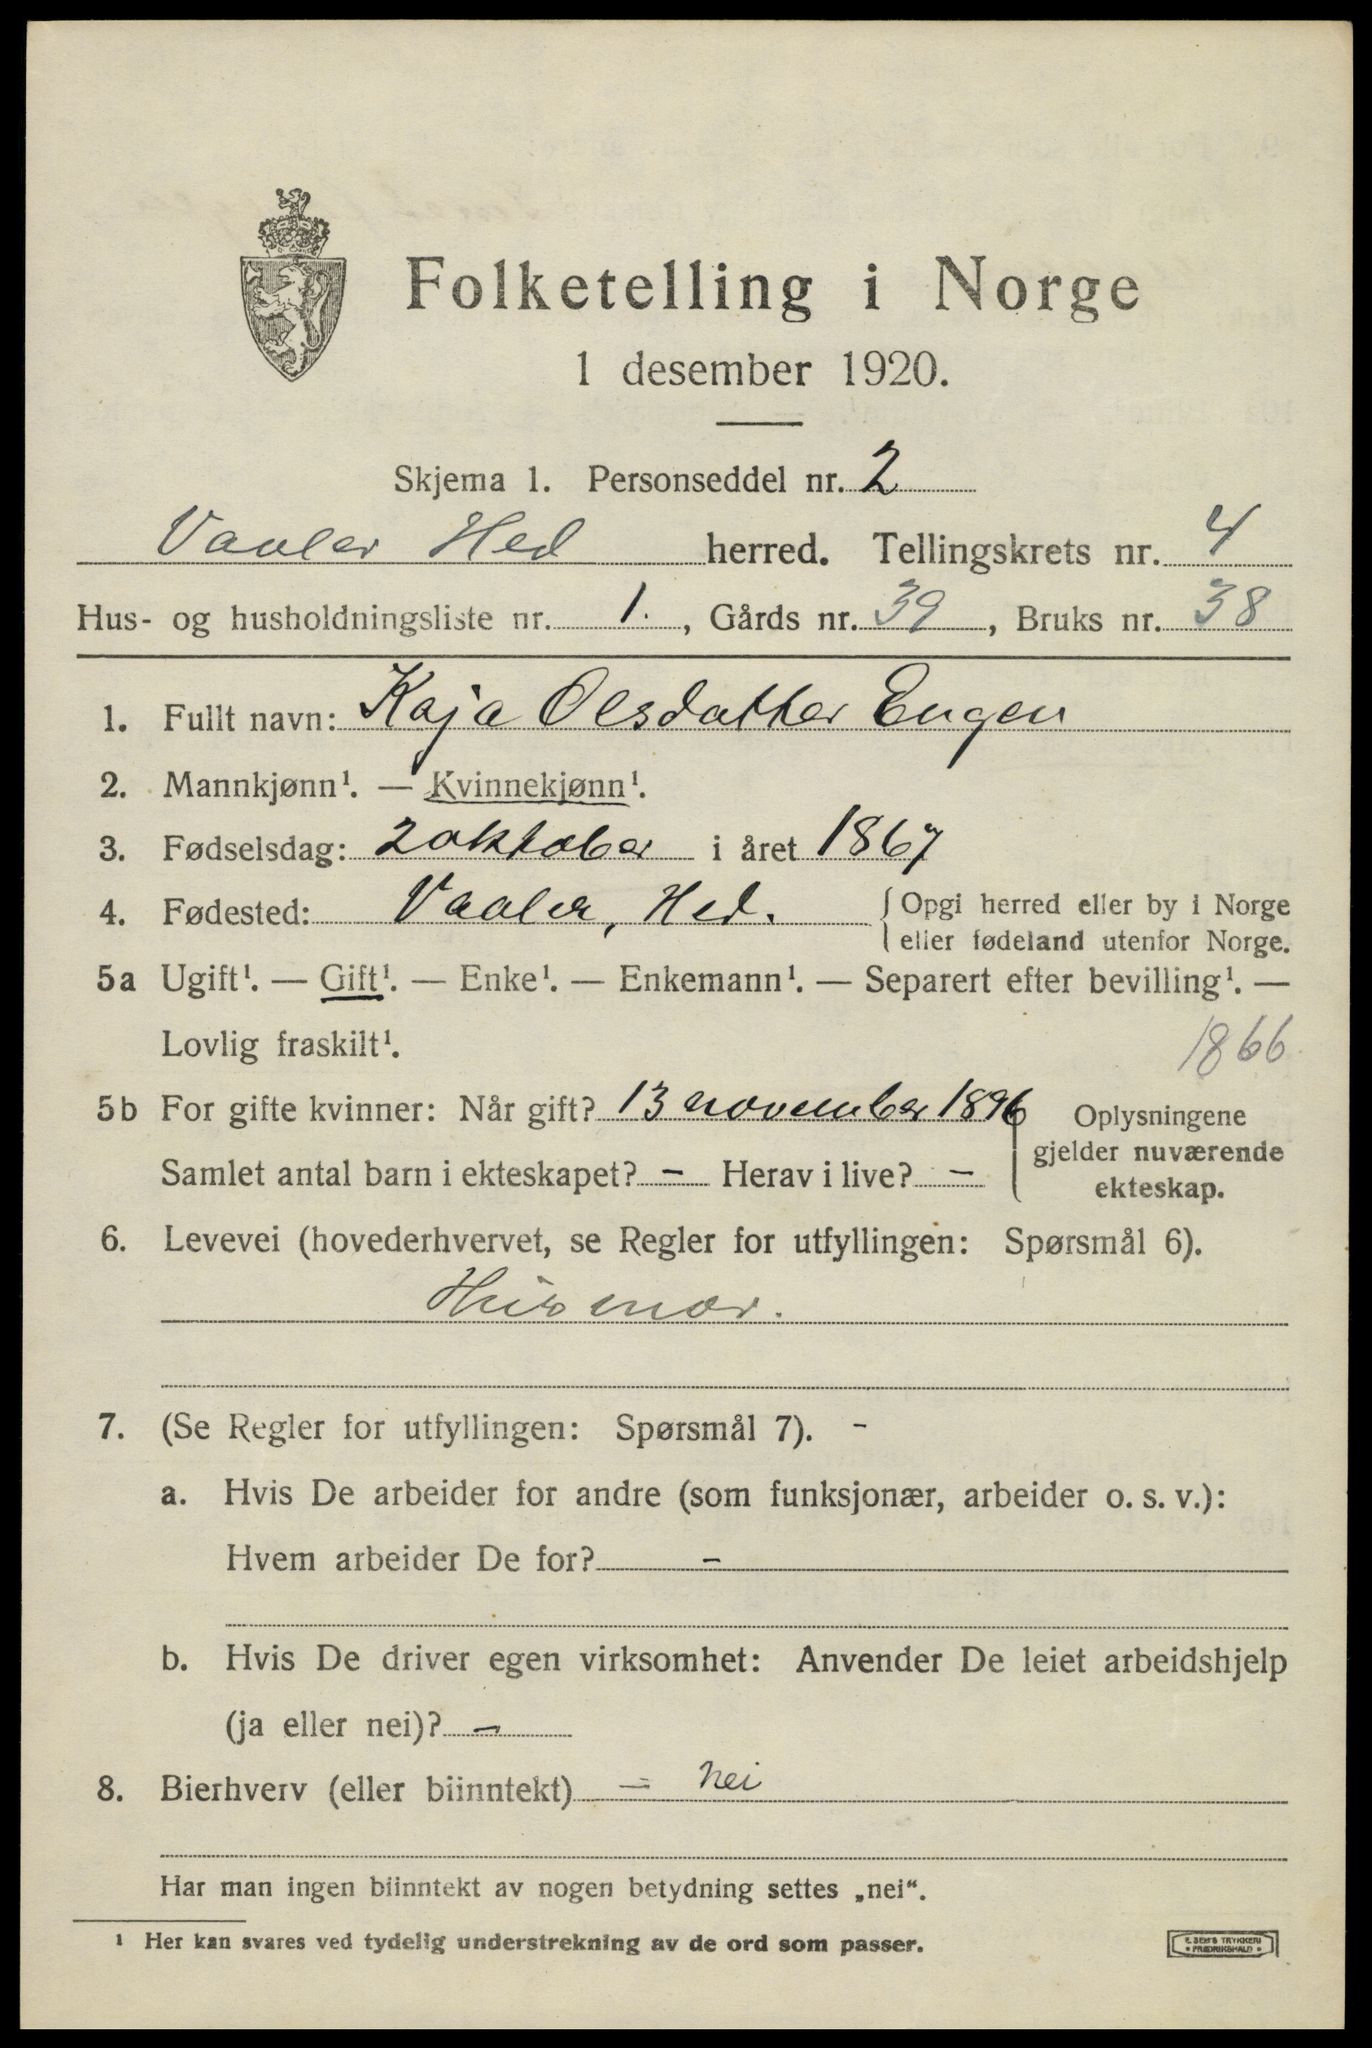 Folketelling i Norge
1 desember 1920.
Skjema 1. Personseddel nr. 2
Vaaler Hed herred. Tellingskrets nr. 4
Hus- og husholdningsliste nr. 1., Gårds nr. 39, Bruks nr. 38
1. Fullt navn: Kaja Olsdatter Engen
2. Mannkjønn¹. — Kvinnekjønn¹.
3. Fødselsdag: 2 oktober i året 1867
4. Fødested: Vaaler, Hed. { Opgi herred eller by i Norge
eller fødeland utenfor Norge.
5a Ugift¹. — Gift¹. — Enke¹. — Enkemann¹. — Separert efter bevilling¹. —
Lovlig fraskilt¹. 1866
5b For gifte kvinner: Når gift? 13 november 1896
Samlet antal barn i ekteskapet? — Herav i live? —
Oplysningene
gjelder nuværende
ekteskap.
6. Levevei (hovederhvervet, se Regler for utfyllingen: Spørsmål 6).
Husmor.
7. (Se Regler for utfyllingen: Spørsmål 7). -
a. Hvis De arbeider for andre (som funksjonær, arbeider o. s. v.):
Hvem arbeider De for? -
b. Hvis De driver egen virksomhet: Anvender De leiet arbeidshjelp
(ja eller nei)? -
8. Bierhverv (eller biinntekt) — nei
Har man ingen biinntekt av nogen betydning settes „nei“.
¹ Her kan svares ved tydelig understrekning av de ord som passer.
E. SEM'S TRYKKERI
• FREDRIKSHALD •